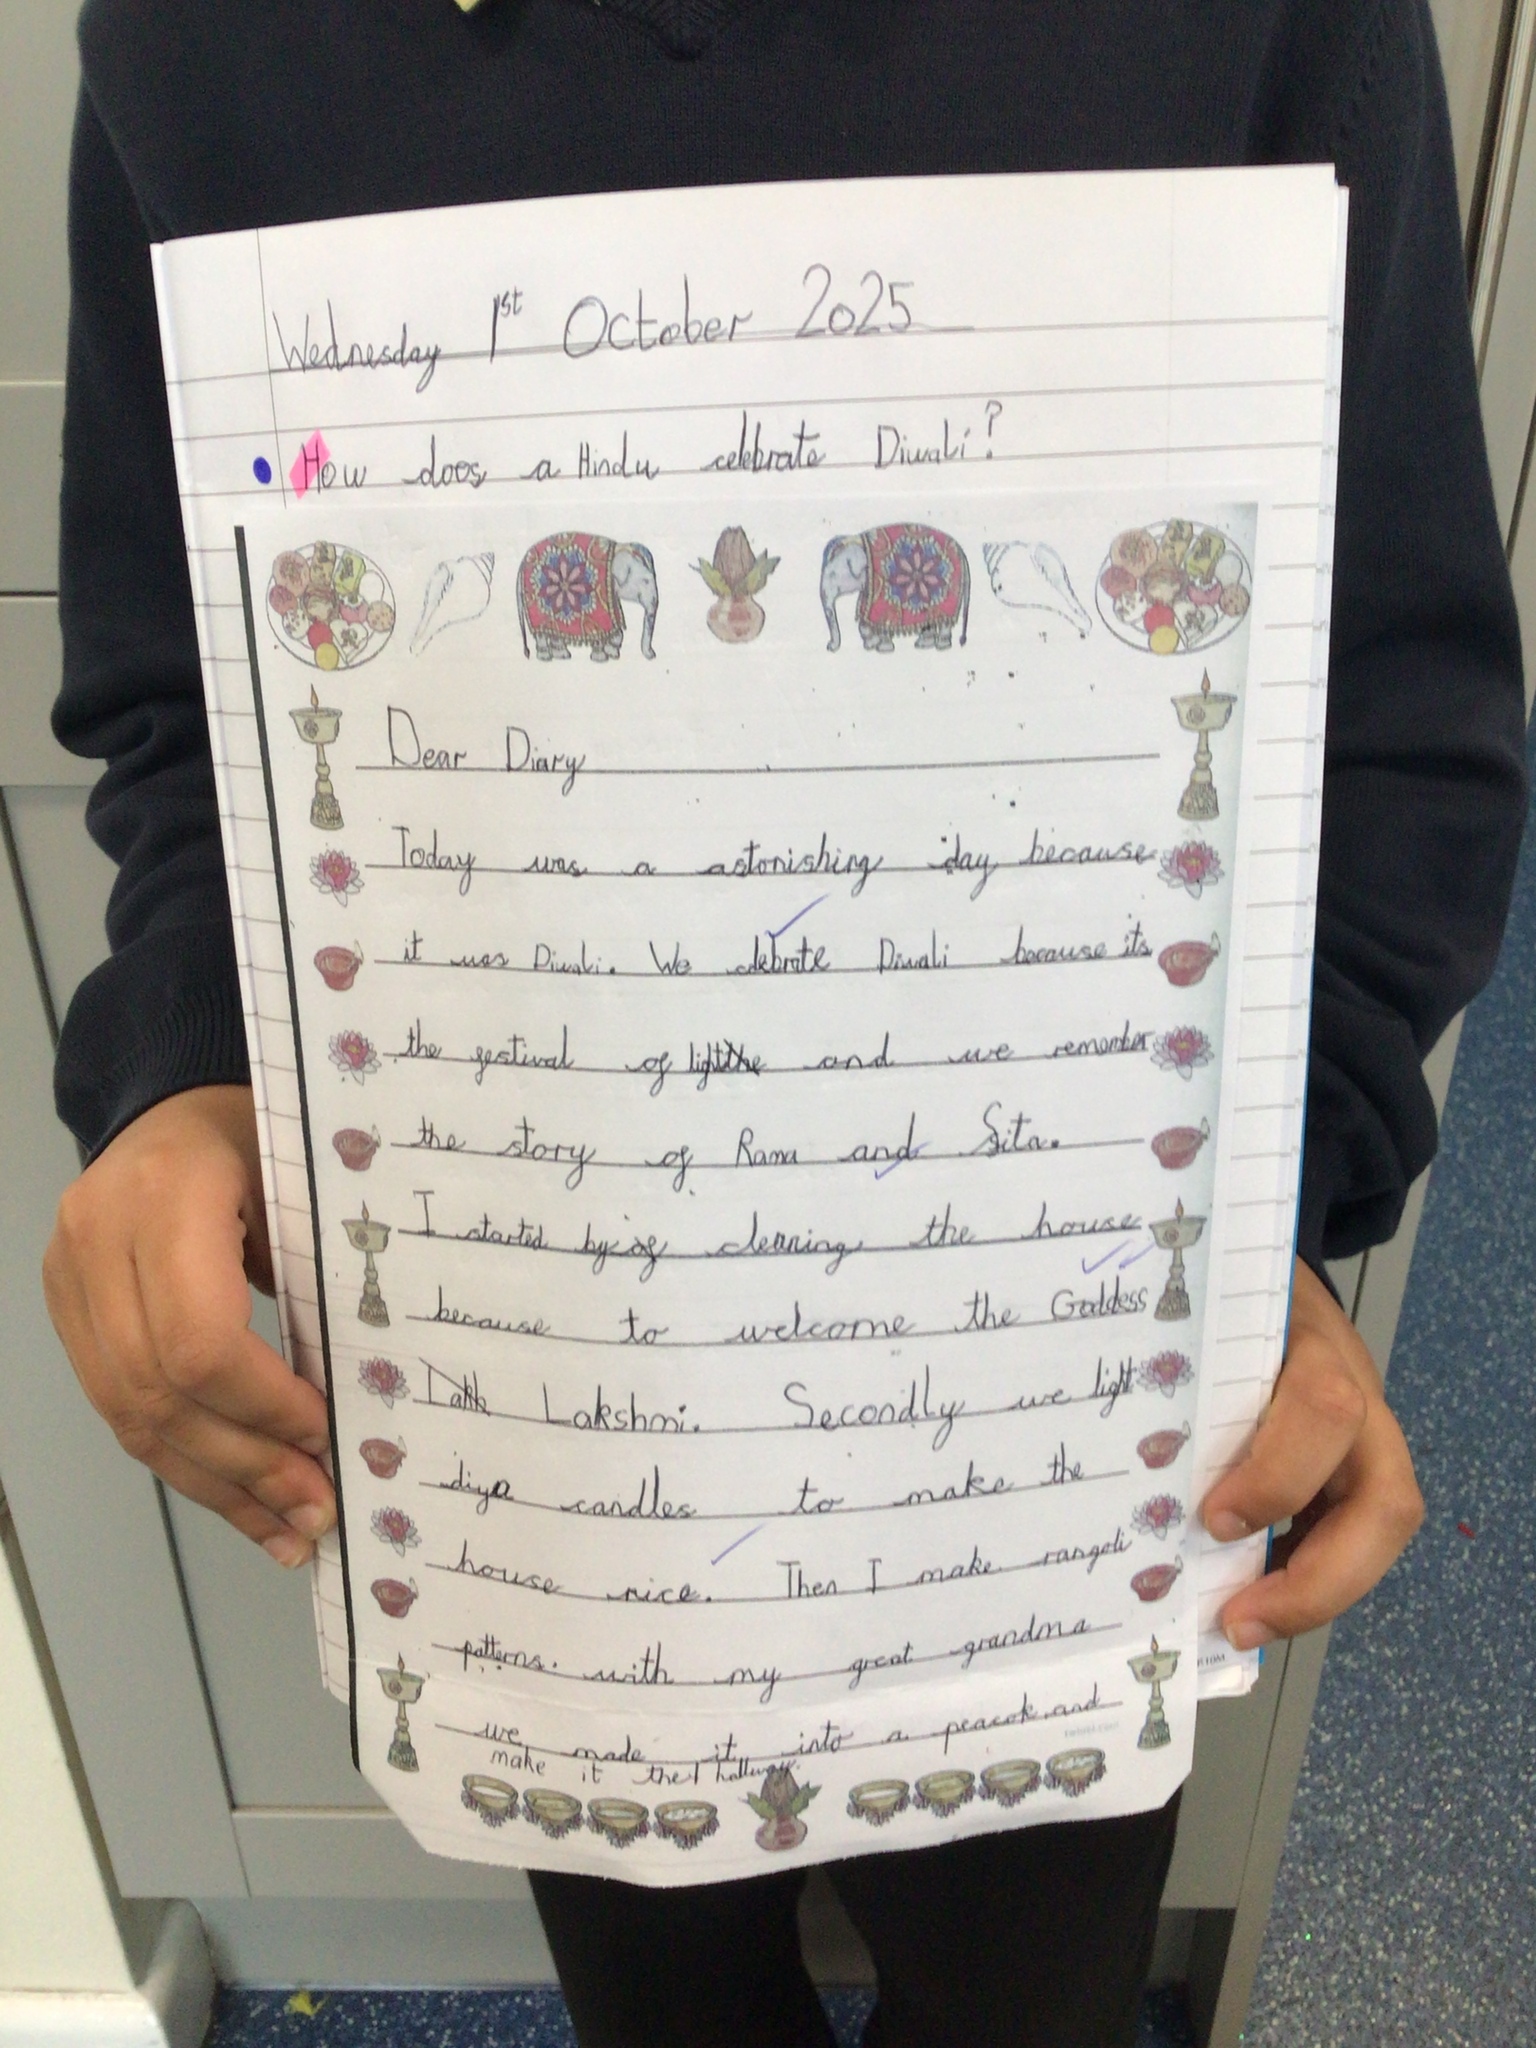 Wednesday 1st October 2025
How does a Hindu celebrate Diwali?
Dear Diary
Today was a astonishing day because
it was Diwali. We clebrate Diwali because its
the festival of light and we remember
the story of Rama and Sita.
I started by cleaning the house
because to welcome the Goddess
Lakshmi. Secondly we light
diya candles to make the
house nice. Then I make rangoli
patterns. with my great grandma
we made it into a peacok and
make it the hallway.